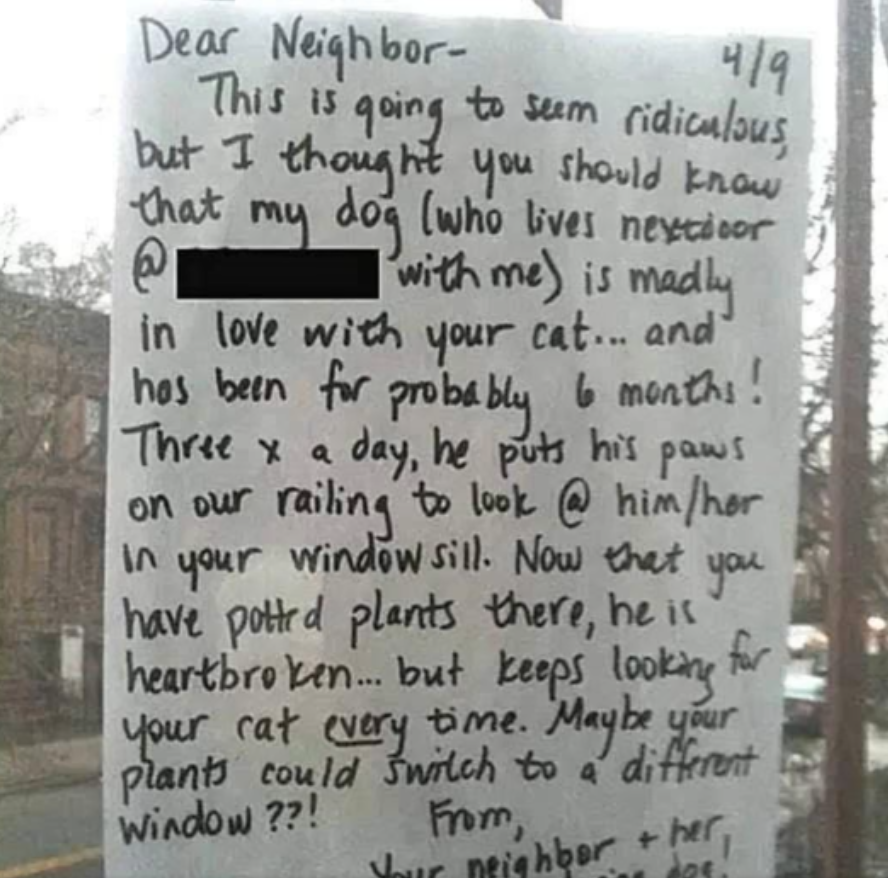 Dear Neighbor- 4/9
This is going to seem ridiculous,
but I thought you should know
that my dog (who lives nextdoor
@ with me) is madly
in love with your cat... and
has been for probably 6 months!
Three x a day, he puts his paws
on our railing to look @ him/her
in your windowsill. Now that you
have potted plants there, he is
heartbroken... but keeps looking for
your cat every time. Maybe your
plants could switch to a different
window??! From,
Your neighbor + her,
dog!